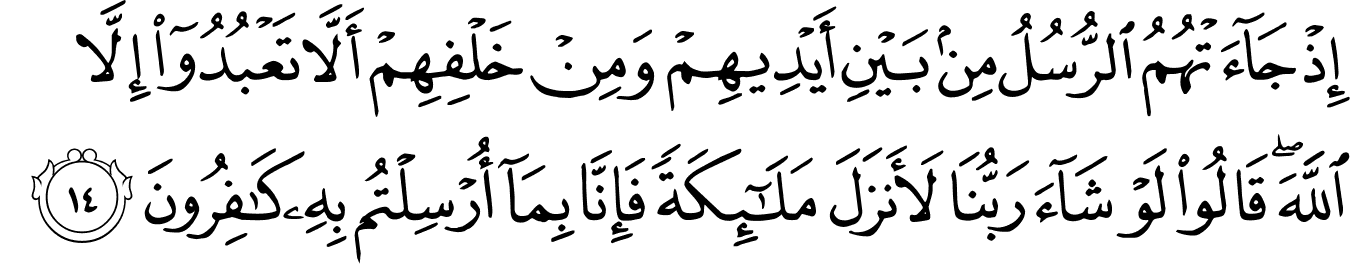 إِذۡ جَآءَتۡهُمُ ٱلرُّسُلُ مِنۢ بَيۡنِ أَيۡدِيهِمۡ وَمِنۡ خَلۡفِهِمۡ أَلَّا تَعۡبُدُوٓاْ إِلَّا
ٱللَّهَۖ قَالُواْ لَوۡ شَآءَ رَبُّنَا لَأَنزَلَ مَلَٰٓئِكَةٗ فَإِنَّا بِمَآ أُرۡسِلۡتُم بِهِۦ كَٰفِرُونَ ١٤